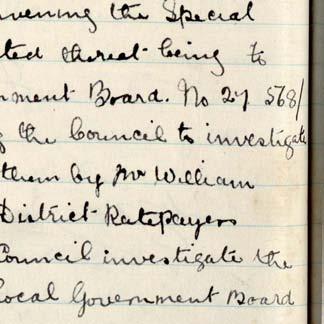 vening the Special
ted thereat being to
nment Board. No 27 568/
g the Council to investigate
them by Mr William
District Ratepayers
Council investigate the
Local Government Board